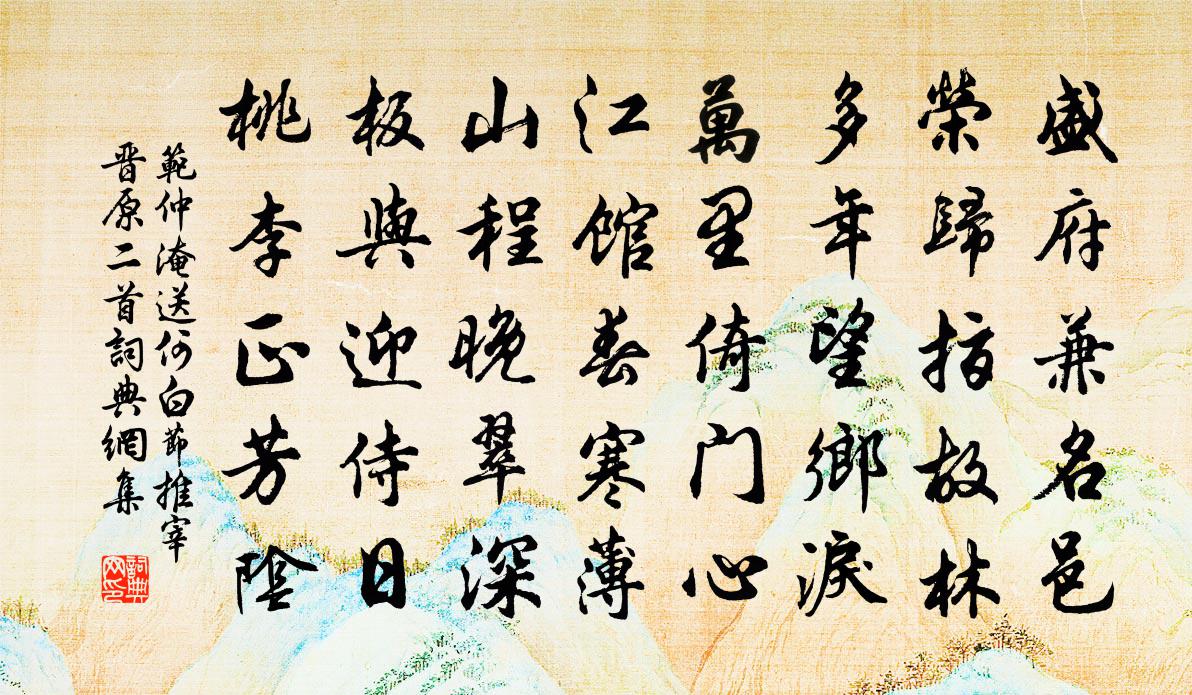 盛府兼名邑
榮歸指故林
多年望鄉淚
萬里倚門心
江館春寒薄
山程晚翠深
板輿迎侍日
桃李正芳陰
範仲淹送何白節推宰
晋原二首詞典網集
詞典
网印